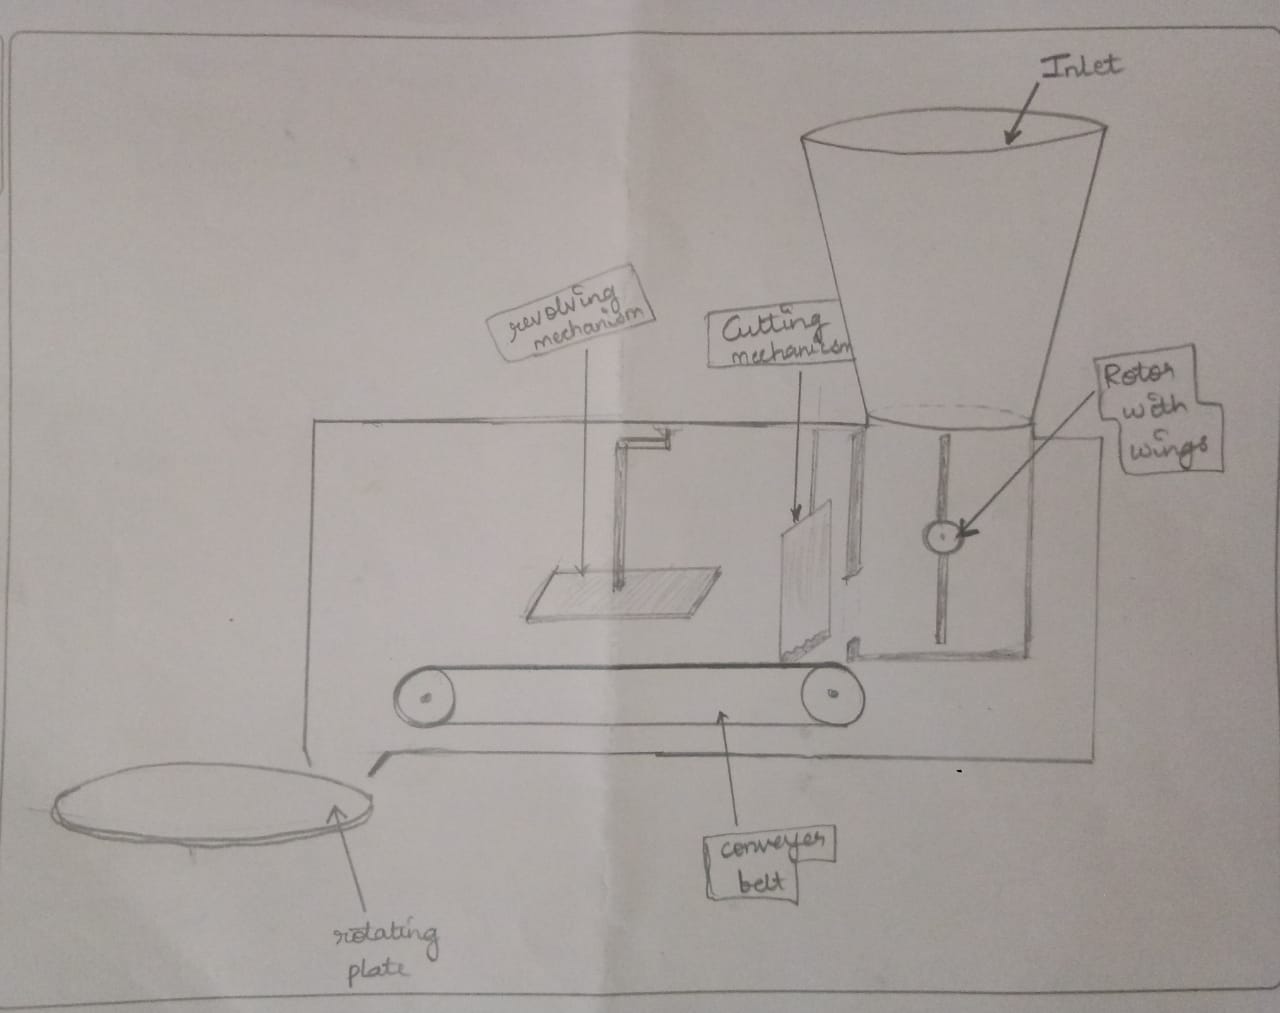 Inlet
revolving
mechanism
Cutting
mechanism
Rotor
with
wings
conveyer
belt
rotating
plate